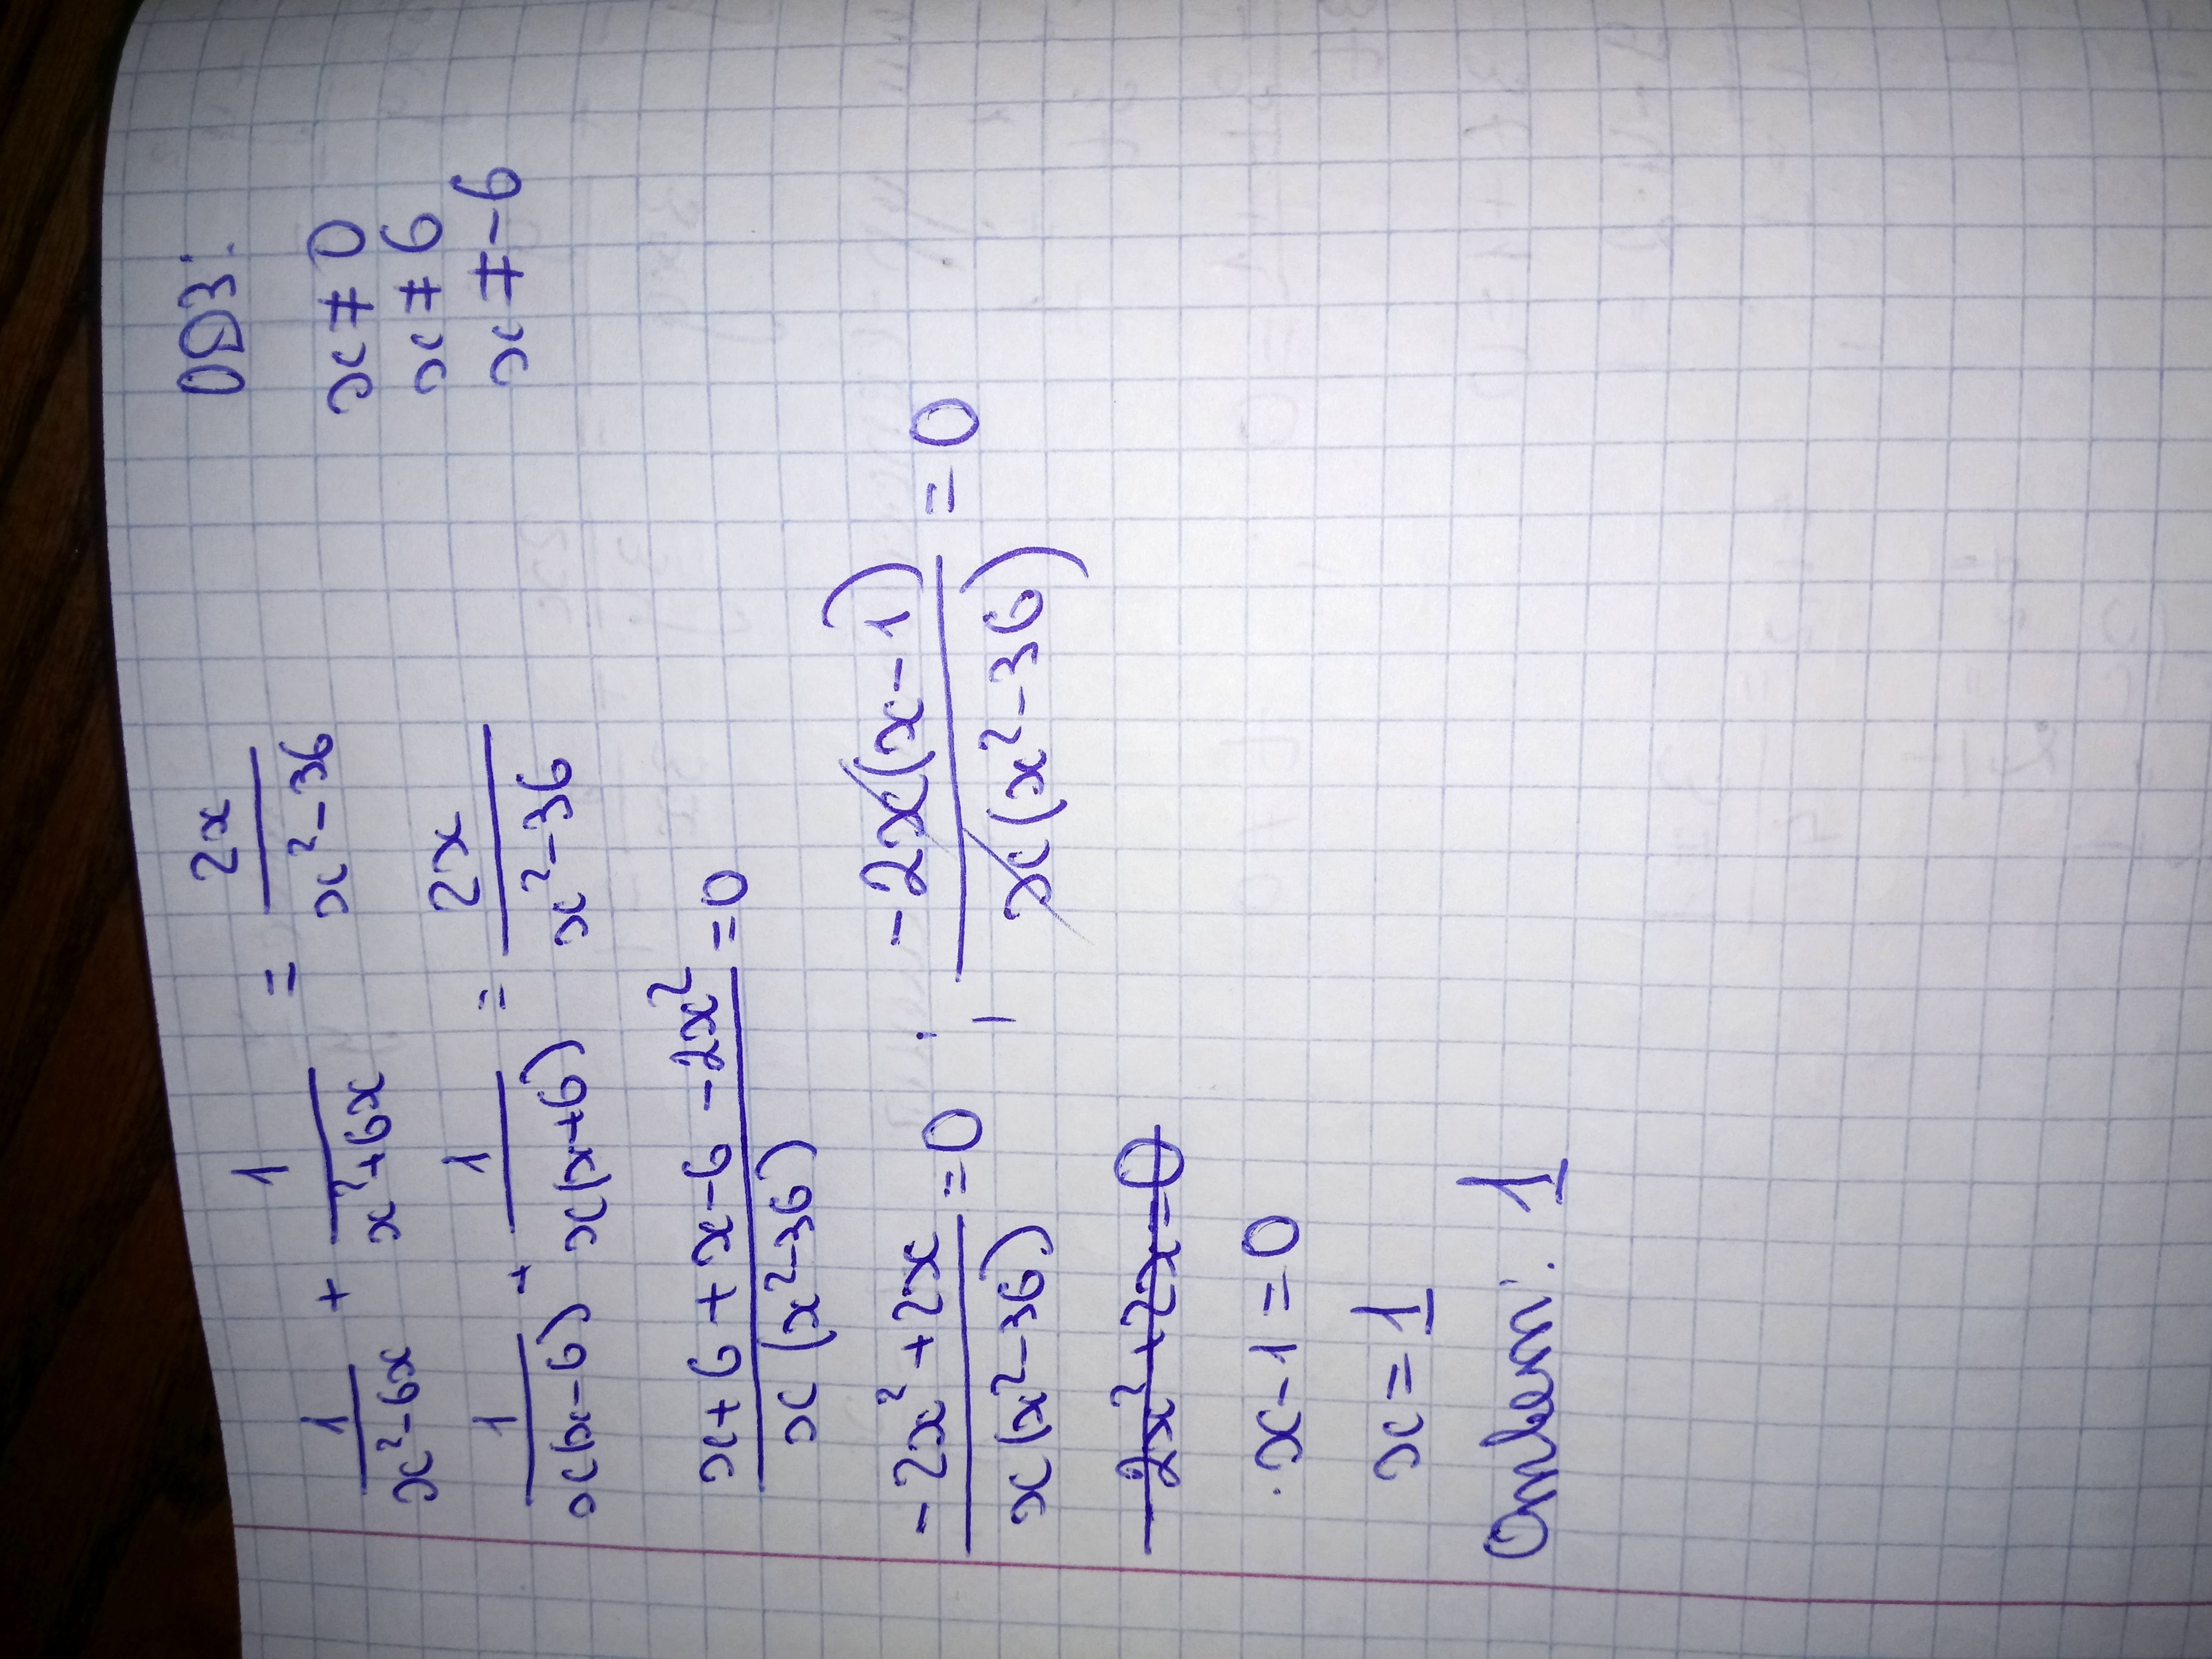 1/(x²-6x) + 1/(x²+6x) = 2x/(x²-36)
ОДЗ:
x ≠ 0
x ≠ 6
x ≠ -6
1/(x(x-6)) + 1/(x(x+6)) = 2x/(x²-36)
(x+6+x-6-2x²)/(x(x²-36)) = 0
(-2x²+2x)/(x(x²-36)) = 0 ; (-2x(x-1))/(x(x²-36)) = 0
-2x²+2x=0
x-1=0
x=1
Ответ: 1